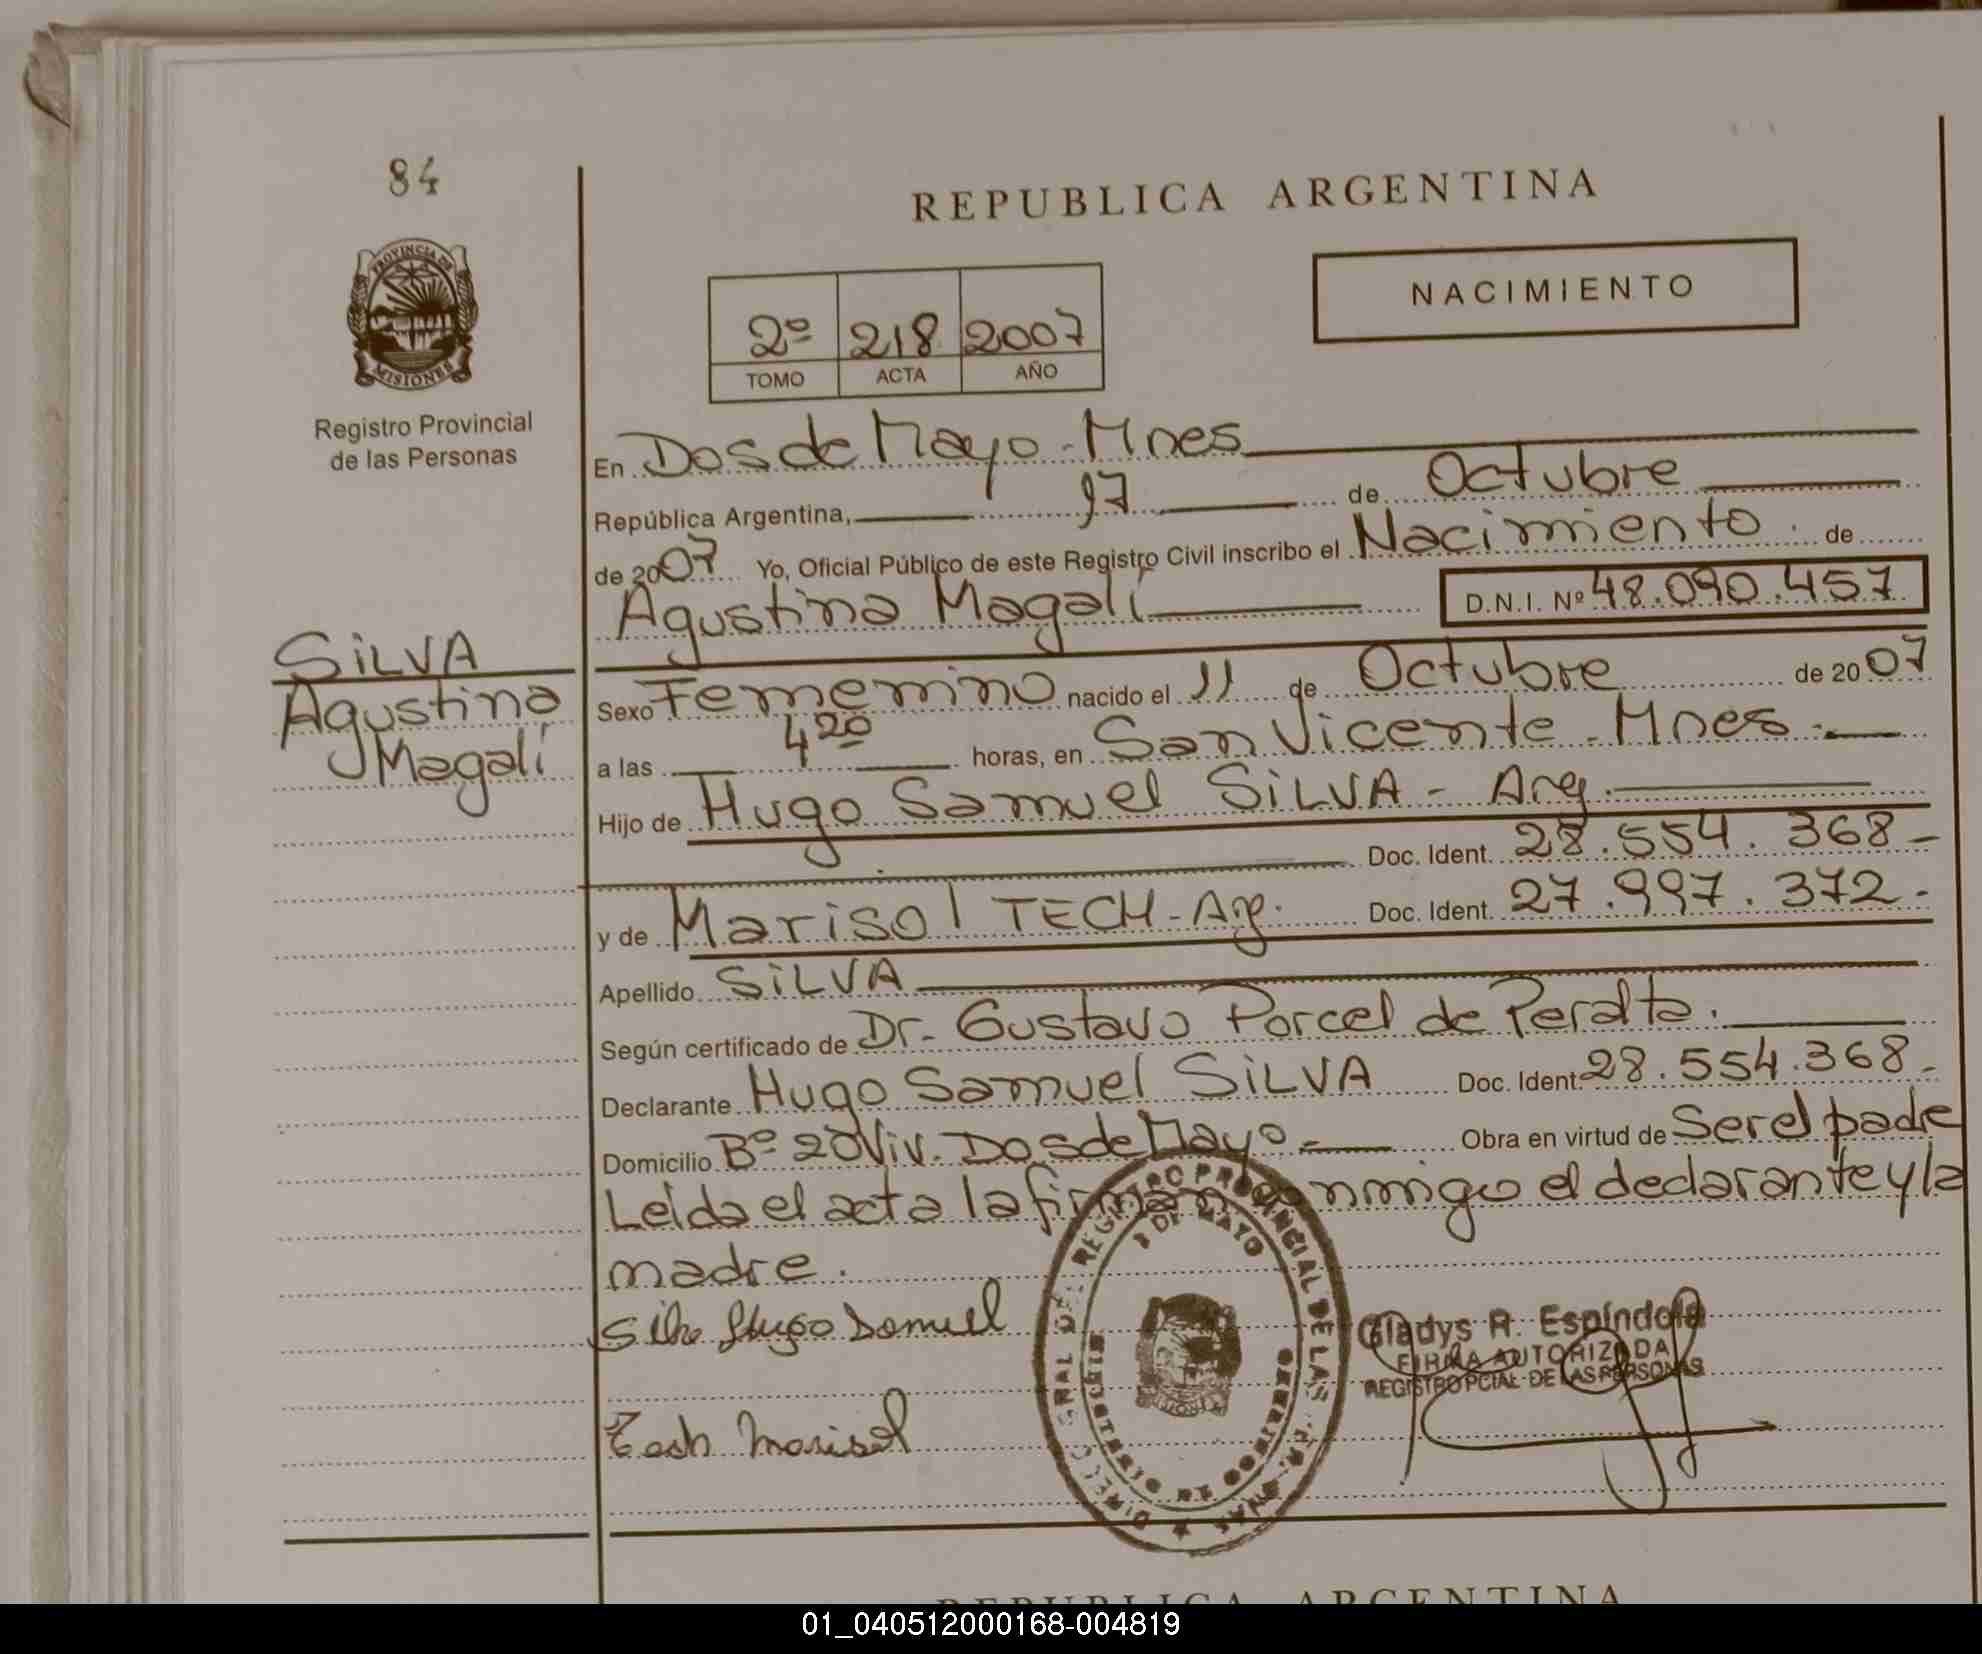 84
REPUBLICA ARGENTINA
PROVINCIA DE
MISIONES
Registro Provincial
de las Personas
NACIMIENTO
2º 218 2007
TOMO ACTA AÑO
En Dos de Mayo - Mnes
República Argentina, 17 de Octubre
de 2007 Yo, Oficial Público de este Registro Civil inscribo el Nacimiento de
Agustina Magalí D.N.I. Nº 48.090.457
SILVA
Agustina
Magalí
Sexo Femenino nacido el 11 de Octubre de 2007
a las 4 20 horas, en San Vicente - Mnes.
Hijo de Hugo Samuel SILVA - Arg.
Doc. Ident. 28.554.368-
y de Marisol TECH - Arg. Doc. Ident. 27.997.372.-
Apellido SILVA
Según certificado de Dr. Gustavo Porcel de Peralta.
Declarante Hugo Samuel SILVA Doc. Ident. 28.554.368-
Domicilio Bº 20 Viv. Dos de Mayo Obra en virtud de Ser el padre
Leída el acta la firman conmigo el declarante y la
madre.
Silva Hugo Samuel
Tech Marisol
REGISTRO PROVINCIAL DE LAS
DE MAYO
Gladys R. Espíndola
FIRMA AUTORIZADA
REGISTRO PCIAL. DE LAS PERSONAS
REPUBLICA ARGENTINA
01_040512000168-004819